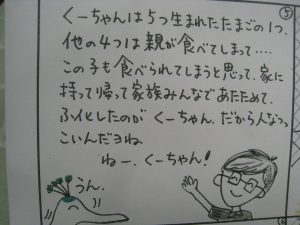 ⑤
くーちゃんは5つ生まれたたまごの1つ.
他の4つは親が食べてしまって‥‥
この子も食べられてしまうと思って、家に
持って帰って家族みんなであたためて、
ふ化したのがくーちゃん。だから人なつっ
こいんだヨね.
ねー、くーちゃん!
うん.